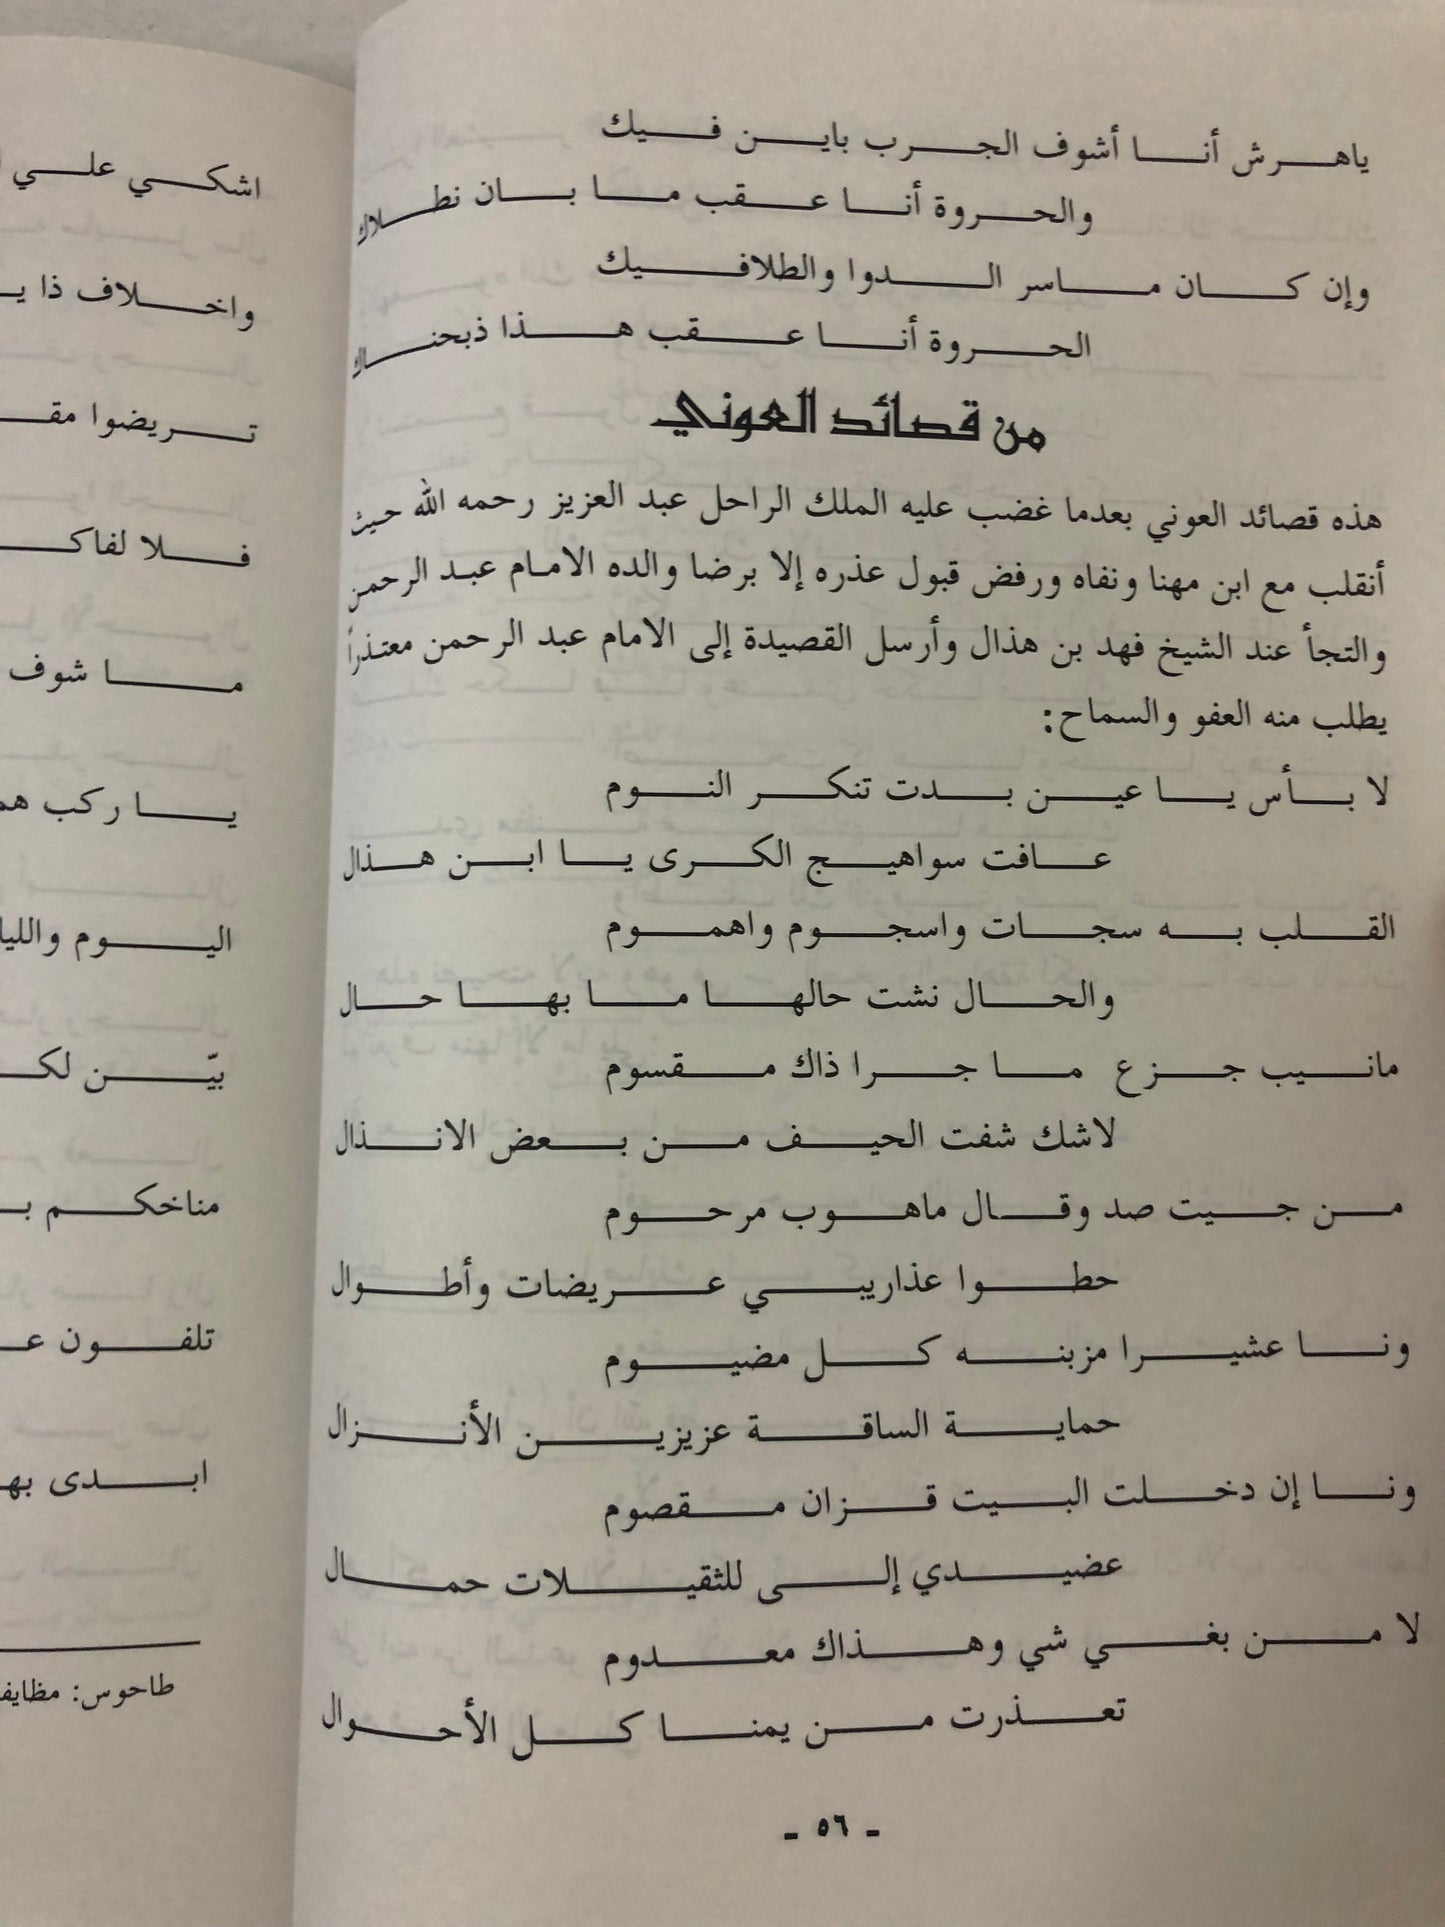 ياهرش أنا أشوف الجرب باين فيك
والحروة أنا عقب ما بان نطلاك
وإن كان ماسر الدوا والطلافيك
الحروة أنا عقب هذا ذبحناك
من قصائد العوني
هذه قصائد العوني بعدما غضب عليه الملك الراحل عبد العزيز رحمه الله حيث
أنقلب مع ابن مهنا ونفاه ورفض قبول عذره إلا برضا والده الامام عبد الرحمن
والتجأ عند الشيخ فهد بن هذال وأرسل القصيدة إلى الامام عبد الرحمن معتذراً
يطلب منه العفو والسماح:
لا بأس يا عين بدت تنكر النوم
عافت سواهيج الكرى يا ابن هذال
القلب به سجات واسجوم واهموم
والحال نشت حالها ما بها حال
مانيب جزع ما جرا ذاك مقسوم
لاشك شفت الحيف من بعض الانذال
من جيت صد وقال ماهوب مرحوم
حطوا عذاريبي عريضات وأطوال
ونا عشيرا مزبنه كل مضيوم
حماية الساقة عزيزين الأنزال
ونا إن دخلت البيت قزان مقصوم
عضيدي إلى للثقيلات حمال
لا من بغي شي وهذاك معدوم
تعذرت من يمنا كل الأحوال
- ٥٦ -
اشكي علي
واخلاف ذا
تريضوا
فلا
ما شوف
يا ركب
اليوم
بيّن
مناخكم
تلفون
ابدى
طاحوس: